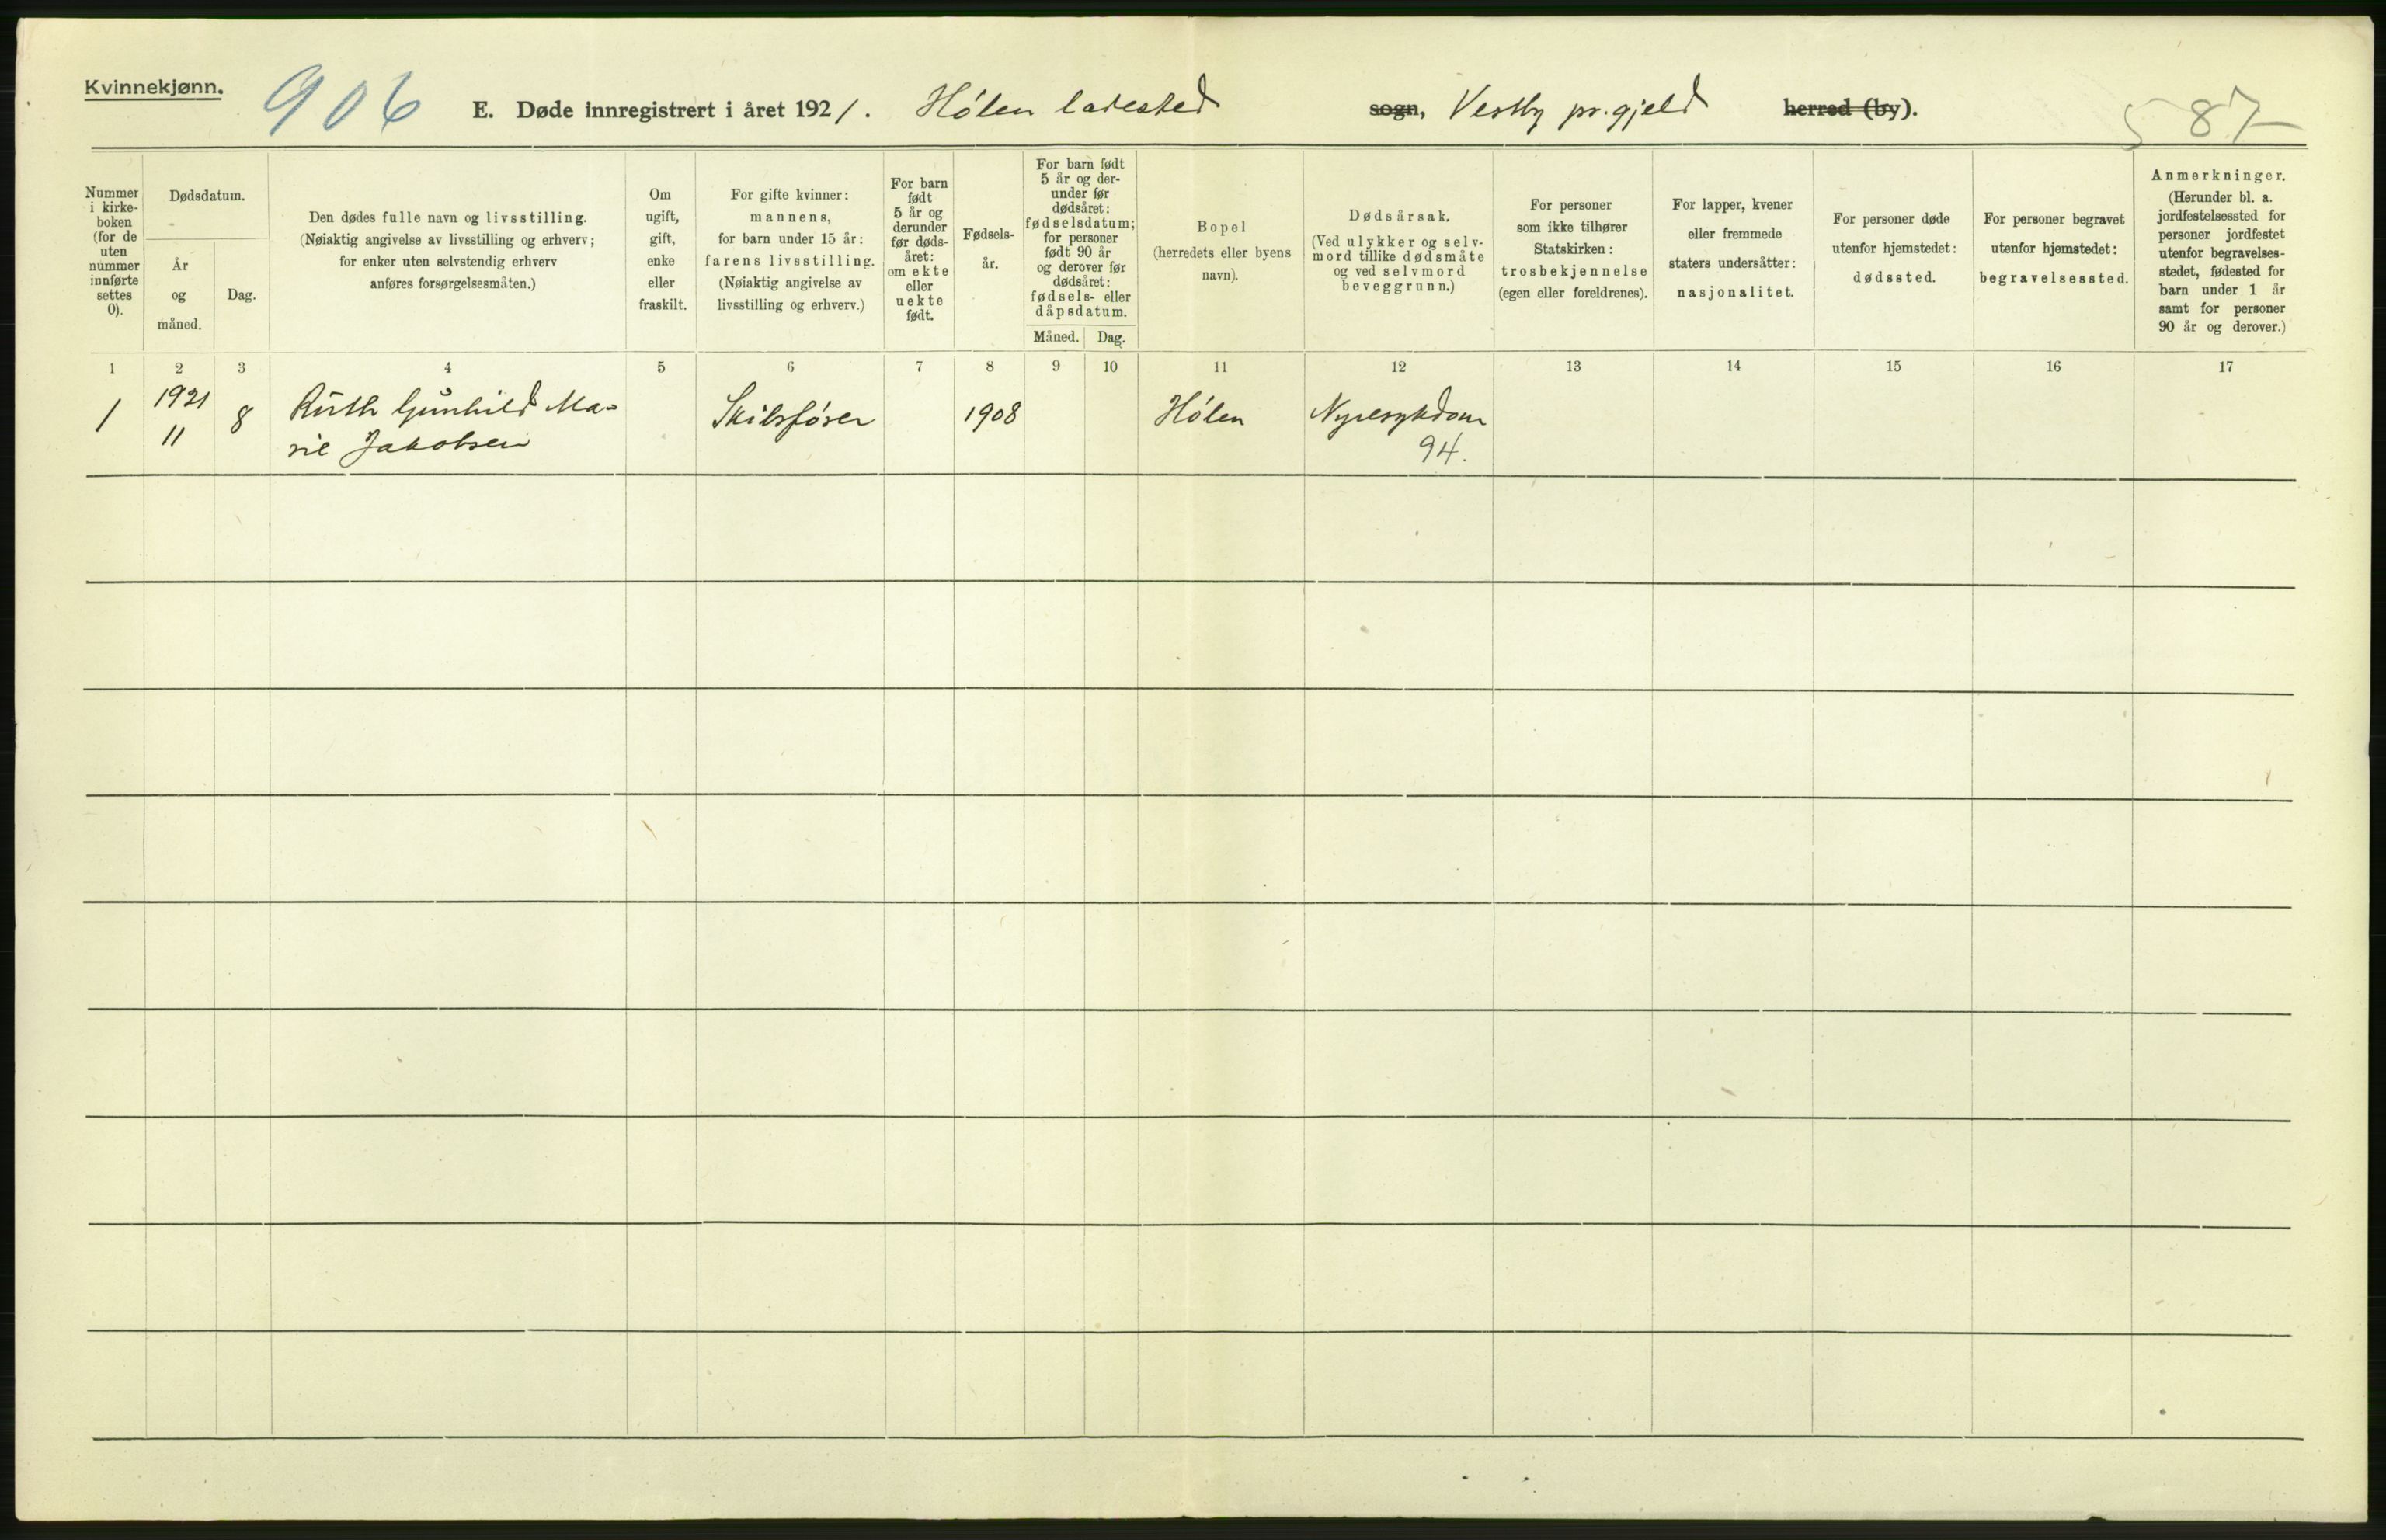 Kvinnekjønn.
906
E. Døde innregistrert i året 1921. Hölen ladested sogn, Vestby pr.gjeld herred (by).
587
Nummer
i kirke-
boken
(for de
uten
nummer
innførte
settes
0).
Dødsdatum.
År
og
måned.
Dag.
Den dødes fulle navn og livsstilling.
(Nøiaktig angivelse av livsstilling og erhverv;
for enker uten selvstendig erhverv
anføres forsørgelsesmåten.)
Om
ugift,
gift,
enke
eller
fraskilt.
For gifte kvinner:
mannens,
for barn under 15 år:
farens livsstilling.
(Nøiaktig angivelse av
livsstilling og erhverv.)
For barn
født
5 år og
derunder
før døds-
året:
om ekte
eller
uekte
født.
Fødsels-
år.
For barn født
5 år og der-
under før
dødsåret:
fødselsdatum;
for personer
født 90 år
og derover før
dødsåret:
fødsels- eller
dåpsdatum.
Måned.
Dag.
Bopel
(herredets eller byens
navn).
Dødsårsak.
(Ved ulykker og selv-
mord tillike dødsmåte
og ved selvmord
beveggrunn.)
For personer
som ikke tilhører
Statskirken:
trosbekjennelse
(egen eller foreldrenes).
For lapper, kvener
eller fremmede
staters undersåtter:
nasjonalitet.
For personer døde
utenfor hjemstedet:
dødssted.
For personer begravet
utenfor hjemstedet:
begravelsessted.
Anmerkninger.
(Herunder bl. a.
jordfestelsessted for
personer jordfestet
utenfor begravelses-
stedet, fødested for
barn under 1 år
samt for personer
90 år og derover.)
1 2 3 4 5 6 7 8 9 10 11 12 13 14 15 16 17
1
1921
11
8
Ruth Gunhild Ma-
rie Jakobsen
Skibsfører
1908
Hölen
Nyresykdom
94.